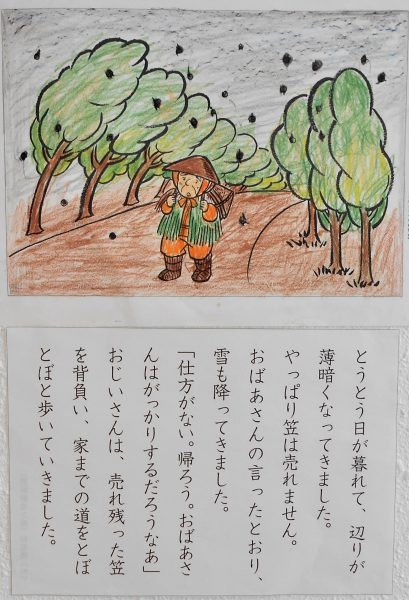 とうとう日が暮れて、辺りが
薄暗くなってきました。
やっぱり笠は売れません。
おばあさんの言ったとおり、
雪も降ってきました。
「仕方がない。帰ろう。おばあさ
んはがっかりするだろうなあ」
おじいさんは、売れ残った笠
を背負い、家までの道をとぼ
とぼと歩いていきました。